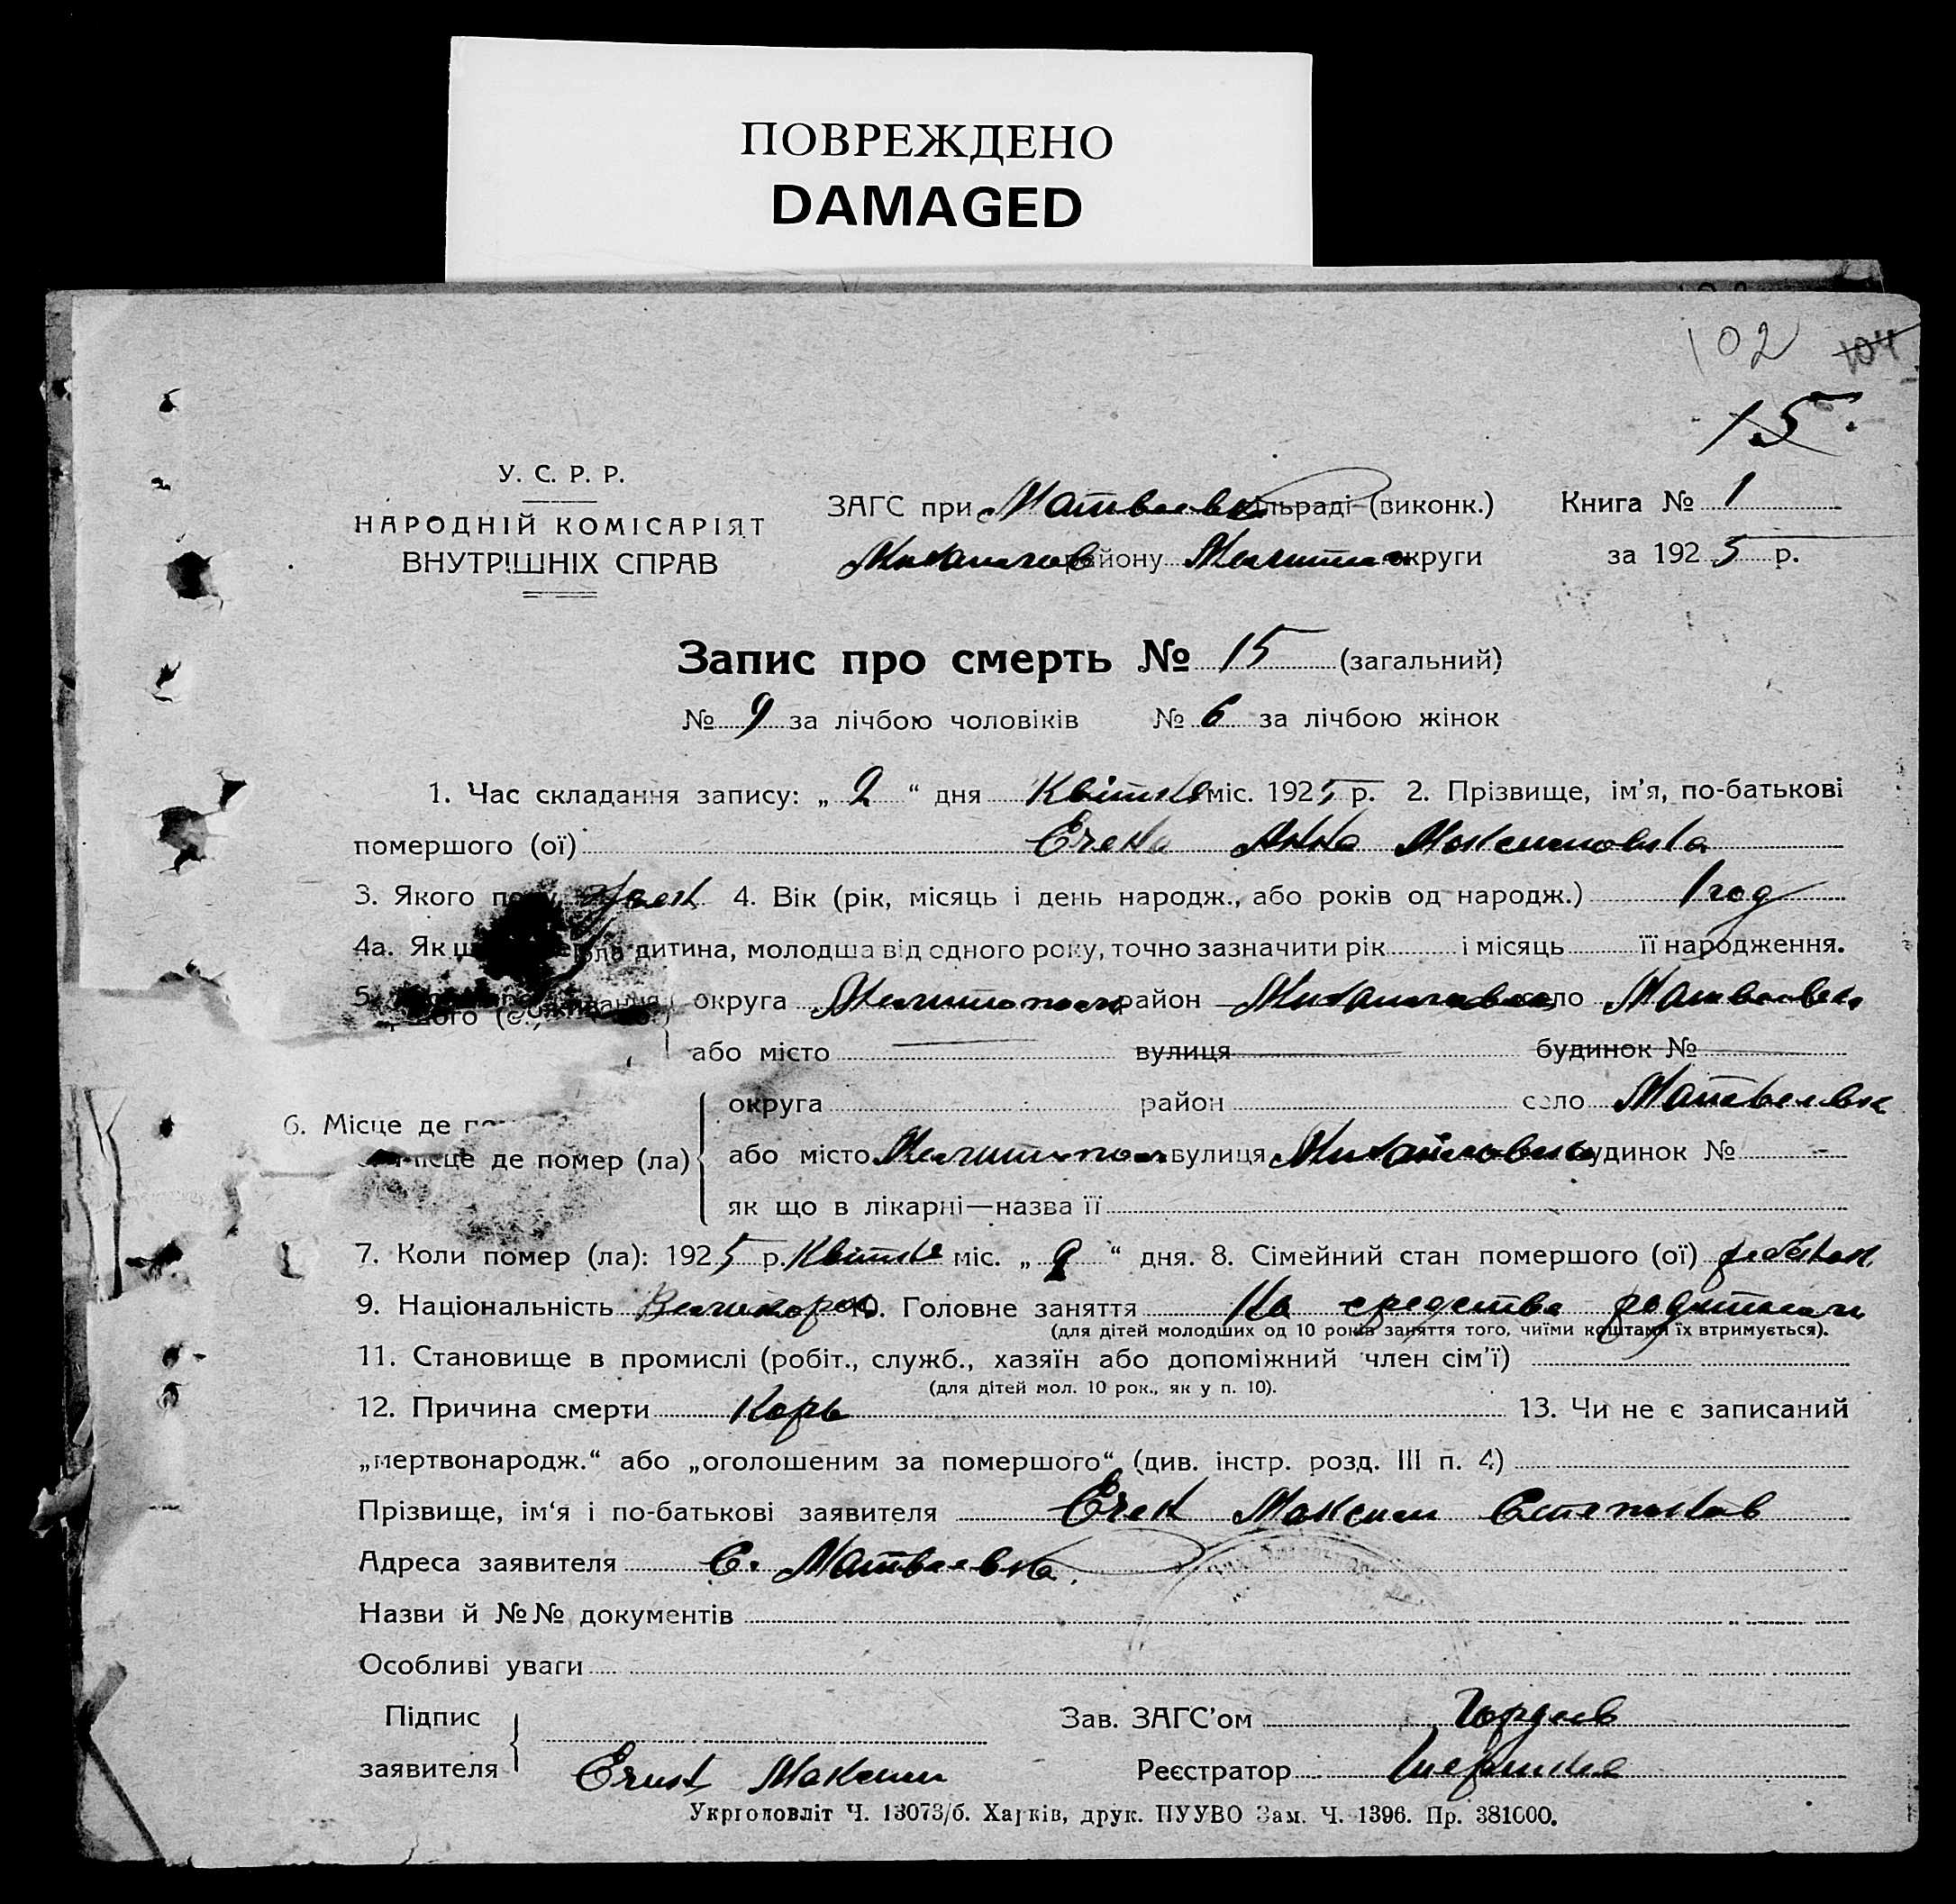 ПОВРЕЖДЕНО
DAMAGED
102 104
15.
У. С. Р. Р.
НАРОДНІЙ КОМІСАРІЯТ
ВНУТРІШНІХ СПРАВ
ЗАГС при Матвеевк ільраді (виконк.) Книга № 1
району округи за 1925 р.
Запис про смерть № 15 (загальний)
№ 9 за лічбою чоловіків № 6 за лічбою жінок
1. Час складання запису: „ 2 “ дня Квітня міс. 1925 р. 2. Прізвище, ім'я, по-батькові
помершого (ої) Анна Максимовна
3. Якого 4. Вік (рік, місяць і день народж., або років од народж.) 1 год
4а. Як дитина, молодша від одного року, точно зазначити рік і місяць її народження.
5. округа Мелитополь район Михайловка село Матвеевка
або місто вулиця будинок №
округа район село Матвеевка
6. Місце де
місце де помер (ла) або місто Мелитопол вулиця Михайловка будинок № -
як що в лікарні—назва її
7. Коли помер (ла): 1925 р. Квітня міс. „ 2 “ дня. 8. Сімейний стан помершого (ої)
9. Національність Великорос 10. Головне заняття На средства родители
(для дітей молодших од 10 років заняття того, чиїми коштами їх втримується).
11. Становище в промислі (робіт., служб., хазяїн або допоміжний член сім'ї)
(для дітей мол. 10 рок., як у п. 10).
12. Причина смерти Корь 13. Чи не є записаний
„мертвонародж.“ або „оголошеним за помершого“ (див. інстр. розд. III п. 4)
Прізвище, ім'я і по-батькові заявителя Максим
Адреса заявителя С. Матвеевка.
Назви й №№ документів
Особливі уваги
Підпис Зав. ЗАГС'ом Гордеев
заявителя Максим Реєстратор
Укрголовліт Ч. 13073/б. Харків, друк. ПУУВО Зам. Ч. 1396. Пр. 381000.